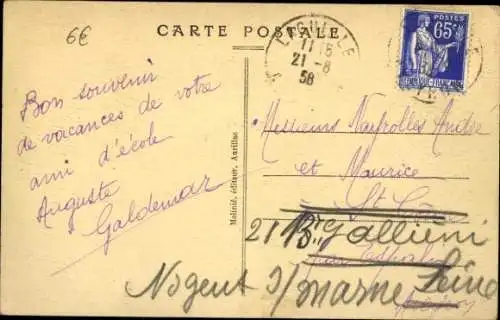 6€
CARTE POSTALE
LAGUIOLE
11 15
21-8
38
POSTES
65c
REPUBLIQUE FRANÇAISE
Bon souvenir
de vacances de votre
ami d'école
Auguste
Galdemar
Malinié, éditeur, Aurillac
Messieurs Nayrolles André
et Maurice
St Côme
21 Bd Galliéni
Nogent s/marne Seine